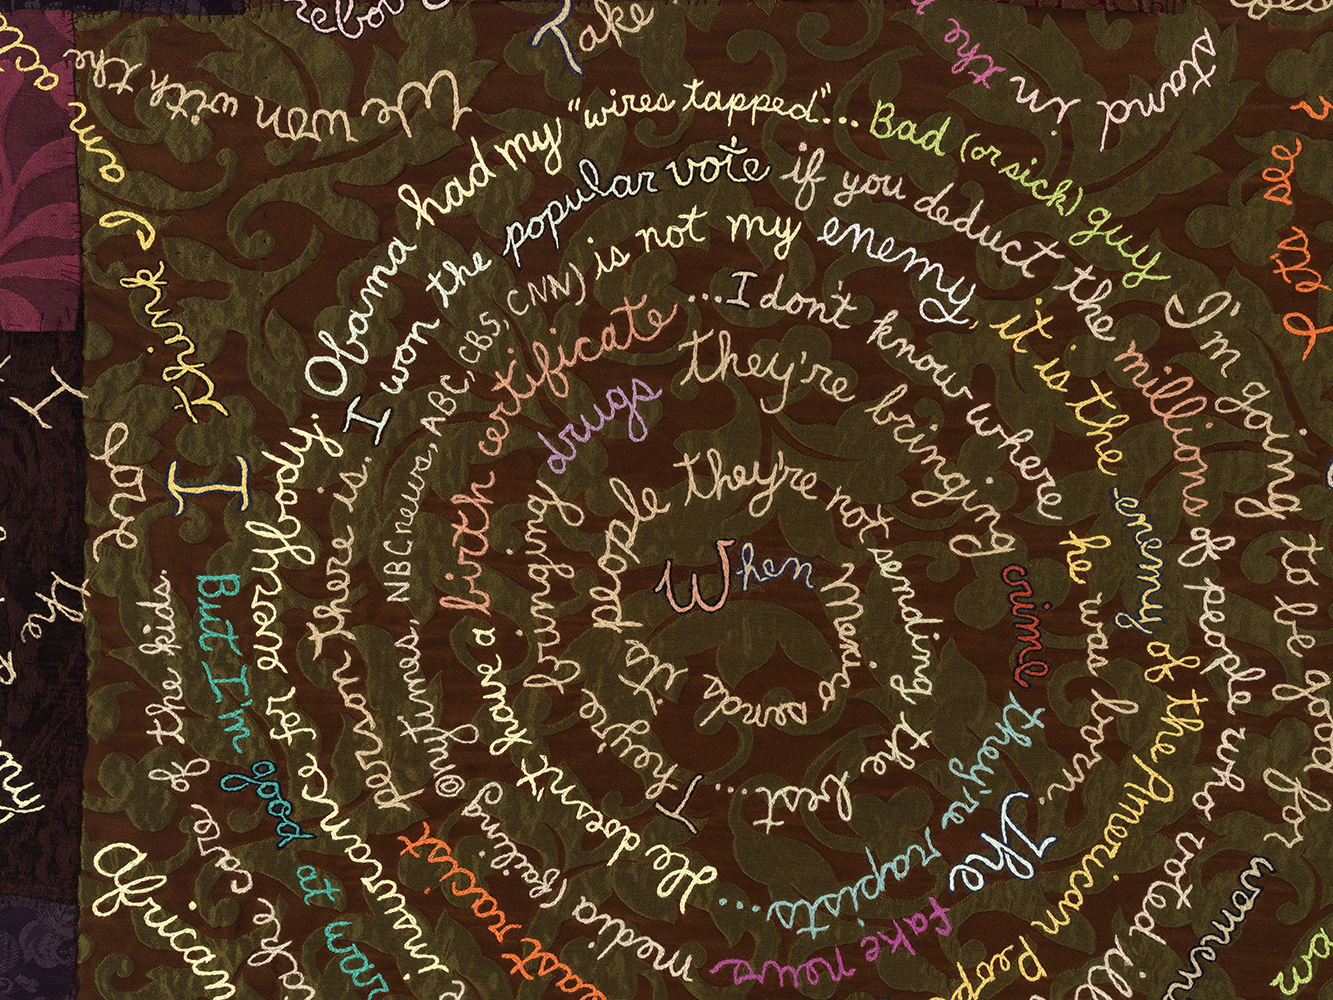 When Mexico sends it's people they're not sending the best...
They're bringing drugs they're bringing crime they're rapists...
He doesn't have a birth certificate ...I don't know where he was born.
The fake news media (failing @nytimes, NBCnews, ABC, CBS, CNN) is not my enemy, it is the enemy of the American People
east racist person there is.
I won the popular vote if you deduct the millions of people who voted ill
insurance for everybody.
Obama had my "wires tapped"... Bad (or sick) guy
I'm going to be good for women
But I'm good at war
take care of the kids.
I think I am
We won with the
I love the
Take
stand in the
see